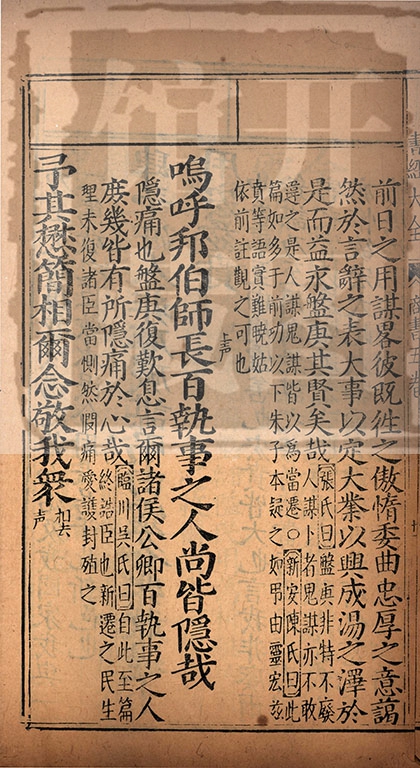 前日之用謀畧彼既徃之傲惰委曲忠厚之意藹
然於言辭之表大事以定大業以興成湯之澤於
是而益永盤庚其賢矣哉張氏曰盤庚非特不廢
人謀卜者鬼謀亦不敢
違之是人謀鬼謀皆以為當遷○新安陳氏曰此
篇如多于前功以下朱子本疑之如弔由靈宏兹
賁等語實難曉姑
依前註觀之可也
嗚呼邦伯師長上声百執事之人尚皆隱哉
隱痛也盤庚復歎息言爾諸侯公卿百執事之人
庶幾皆有所隱痛於心哉臨川吳氏曰自此至篇
終誥臣也新遷之民生
理未復諸臣當惻然憫痛愛護封殖之
予其懋簡相爾念敬我衆相去声